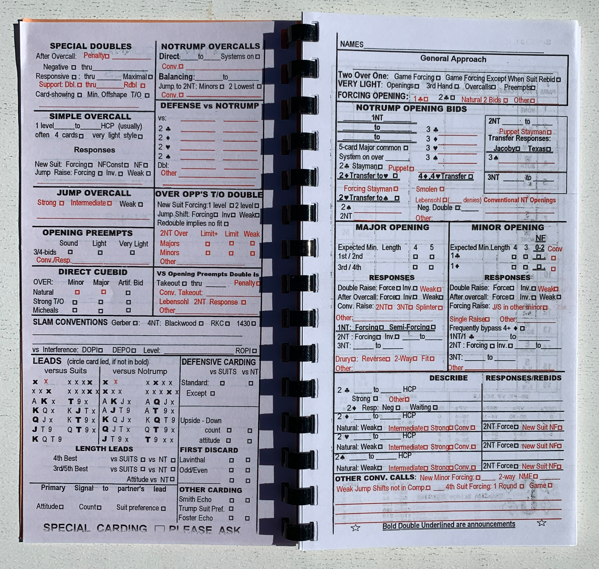 SPECIAL DOUBLES
After Overcall: Penalty
Negative thru
Responsive : thru Maximal
Support: Dbl. thru Rdbl
Card-showing Min. Offshape T/O
SIMPLE OVERCALL
1 level to HCP (usually)
often 4 cards very light style
Responses
New Suit: Forcing NFConst NF
Jump Raise: Forcing Inv. Weak
JUMP OVERCALL
Strong Intermediate Weak
OPENING PREEMPTS
Sound Light Very Light
3/4-bids
Conv./Resp.
DIRECT CUEBID
OVER: Minor Major Artif. Bid
Natural
Strong T/O
Micheals
NOTRUMP OVERCALLS
Direct to Systems on
Conv.
Balancing: to
Jump to 2NT: Minors 2 Lowest
Conv.
DEFENSE vs NOTRUMP
vs:
2 ♣
2 ♦
2 ♥
2 ♠
Dbl:
Other
OVER OPP'S T/O DOUBLE
New Suit Forcing:1 level 2 level
Jump Shift: Forcing Inv Weak
Redouble implies no fit
2NT Over Limit+ Limit Weak
Majors
Minors
Other
VS Opening Preempts Double Is
Takeout thru Penalty
Conv. Takeout:
Lebensohl 2NT Response
Other:
SLAM CONVENTIONS Gerber : 4NT: Blackwood RKC 1430
vs Interference: DOPI DEPO Level: ROPI
LEADS (circle card led, if not in bold)
versus Suits versus Notrump
x x x x x x x x x x x x
A K x T 9 x A K J x A Q J x
K Q x K J T x A J T 9 A T 9 x
Q J x K T 9 x K Q J x K Q T 9
J T 9 Q T 9 x Q J T x Q T 9 x
K Q T 9 J T 9 x T 9 x x
LENGTH LEADS
4th Best vs SUITS vs NT
3rd/5th Best vs SUITS vs NT
Attitude vs NT
Primary Signal to partner's lead
Attitude Count Suit preference
DEFENSIVE CARDING
vs SUITS vs NT
Standard:
Except
Upside - Down
count
attitude
FIRST DISCARD
Lavinthal
Odd/Even
OTHER CARDING
Smith Echo
Trump Suit Pref.
Foster Echo
SPECIAL CARDING PLEASE ASK
NAMES
General Approach
Two Over One: Game Forcing Game Forcing Except When Suit Rebid
VERY LIGHT: Openings 3rd Hand Overcalls Preempts
FORCING OPENING: 1♣ 2♣ Natural 2 Bids Other
NOTRUMP OPENING BIDS
1NT
to
to
5-card Major common
System on over
2♣ Stayman Puppet
2♦Transfer to♥
Forcing Stayman
2♥Transfer to♠
2♠
2NT
3 ♣
3 ♦
3 ♥
3 ♠
4♦,4♥Transfer
Smolen
Lebensohl ( denies)
Neg. Double :
Other:
2NT to
Puppet Stayman
Transfer Responses:
Jacoby Texas
3♠
3NT to
Conventional NT Openings
MAJOR OPENING
Expected Min. Length 4 5
1st / 2nd
3rd / 4th
RESPONSES
Double Raise: Force Inv. Weak
After Overcall: Force Inv. Weak
Conv. Raise: 2NT 3NT Splinter
Other:
1NT: Forcing Semi-Forcing
2NT: Forcing Inv. to
3NT: to
Drury : Reverse 2-Way Fit
Other:
MINOR OPENING
Expected Min. Length 4 3 NF 0-2 Conv
1♣
1♦
RESPONSES
Double Raise: Force Inv. Weak
After overcall: Force Inv. Weak
Forcing Raise: J/S in other minor
Single Raise Other:
Frequently bypass 4+ ♦
1NT/1 ♣ to
2NT: Forcing Inv. to
3NT: to
Other
DESCRIBE RESPONSES/REBIDS
2 ♣ to HCP
Strong Other
2♦ Resp: Neg Waiting
2 ♦ to HCP
Natural: Weak Intermediate Strong Conv 2NT Force New Suit NF
2 ♥ to HCP
Natural: Weak Intermediate Strong Conv 2NT Force New Suit NF
2♠ to HCP
Natural: Weak Intermediate Strong Conv 2NT Force New Suit NF
OTHER CONV. CALLS: New Minor Forcing: 2-way NMF
Weak Jump Shifts not in Comp 4th Suit Forcing: 1 Round Game
Bold Double Underlined are announcements